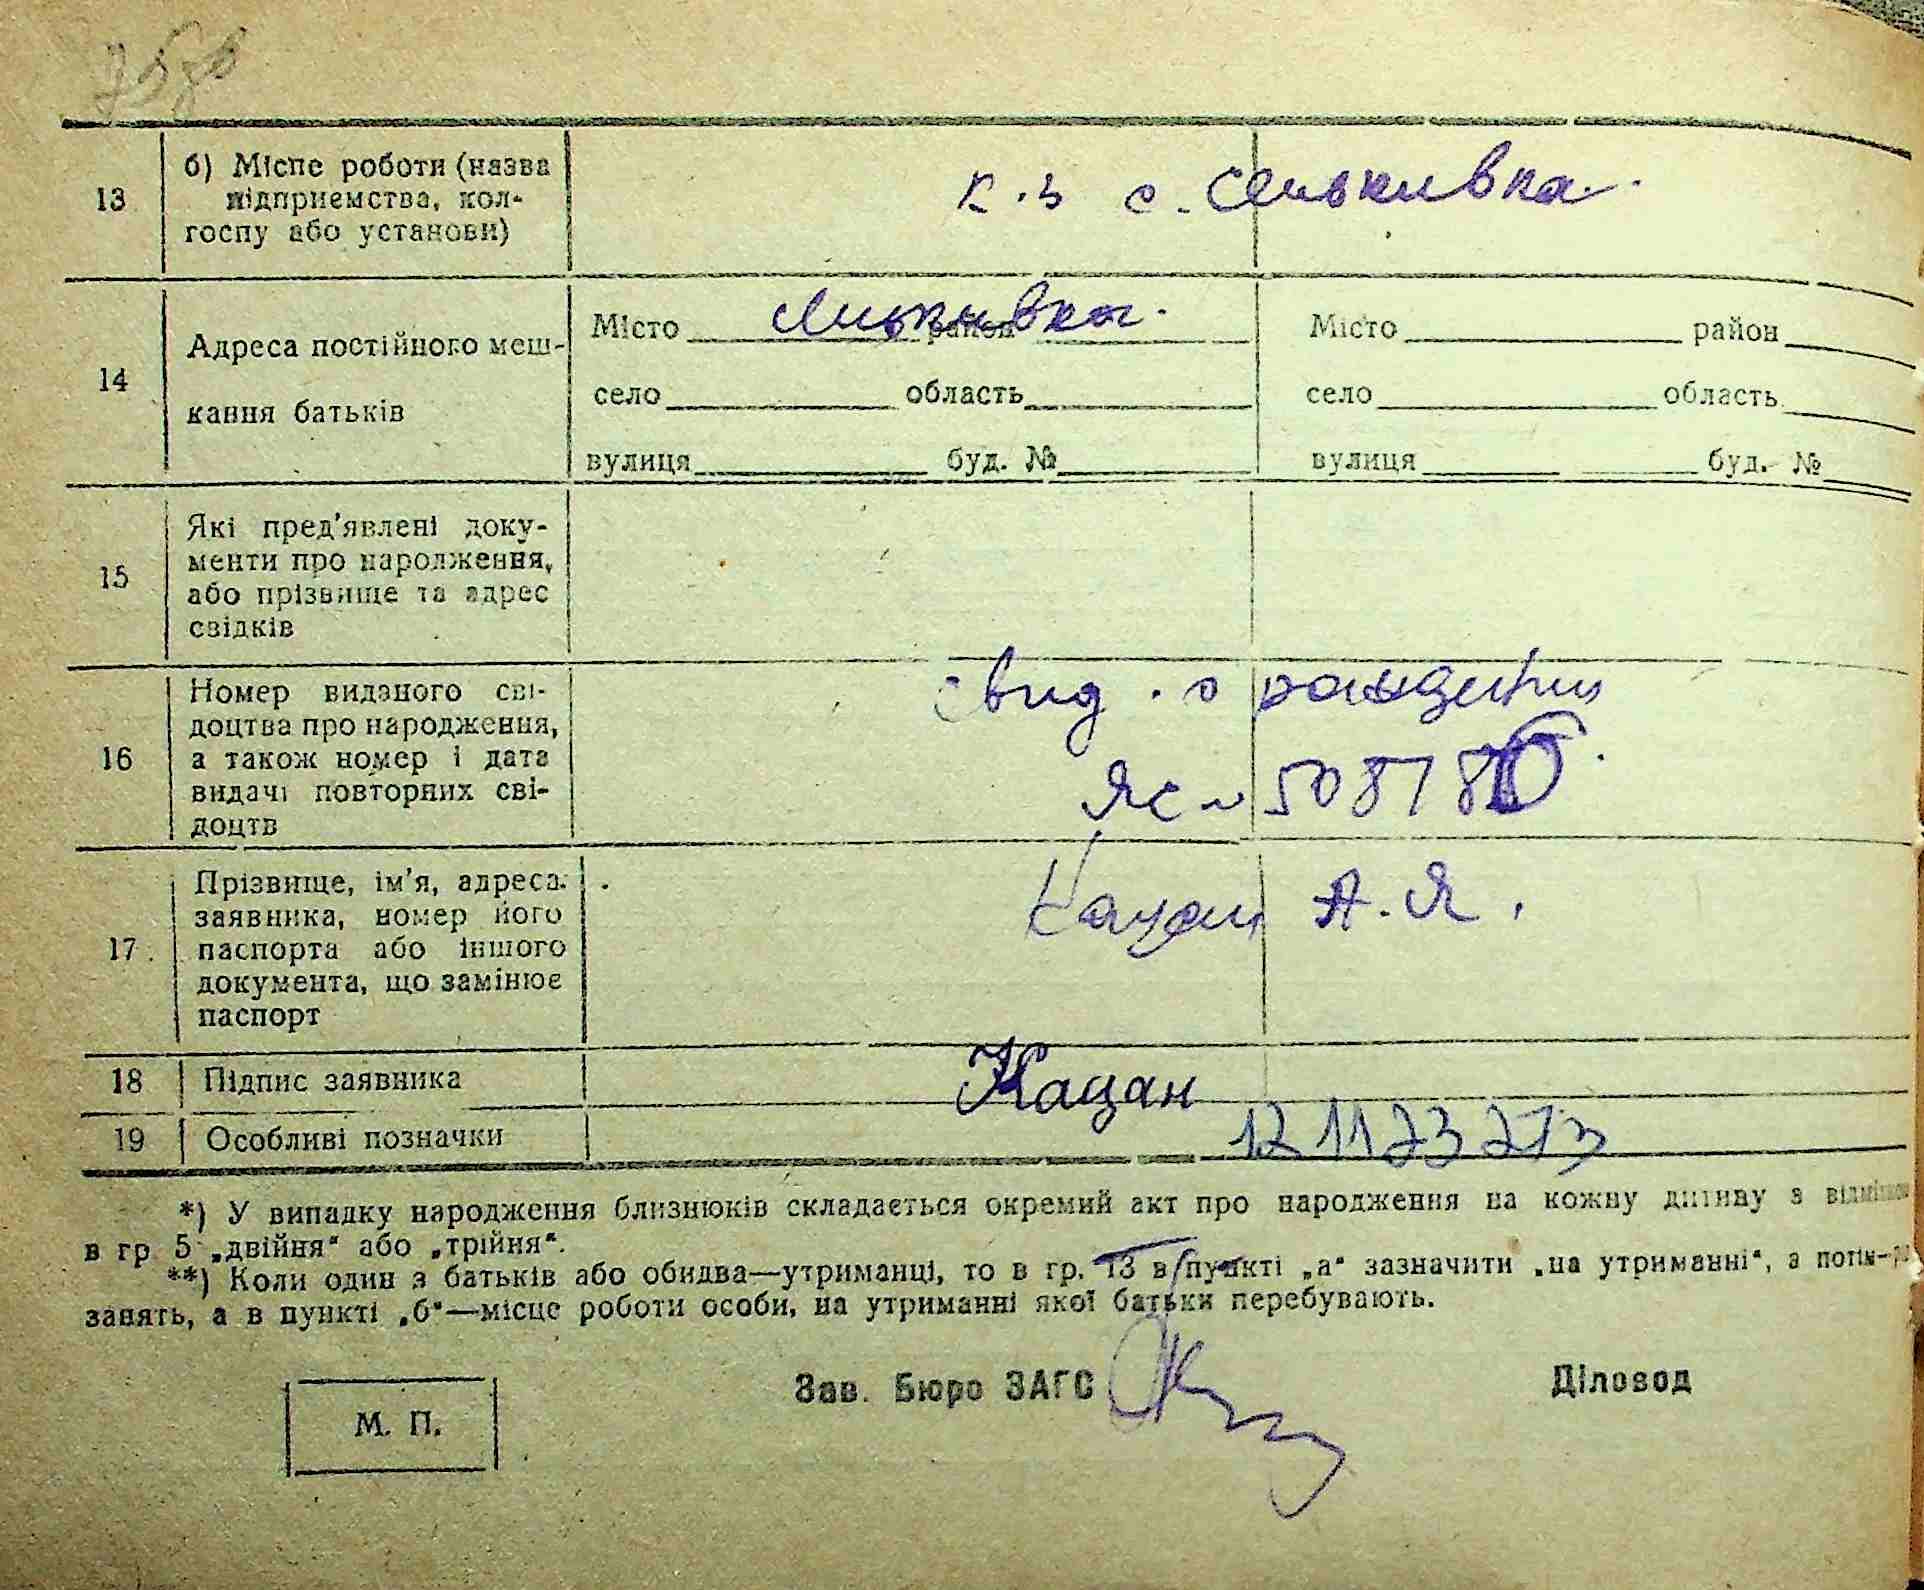 13
б) Місце роботи (назва
підприємства, кол-
госпу або установи)
к-з с. Сеньківка.
14
Адреса постійного меш-
кання батьків
Місто Сеньківка. район
село область
вулиця буд. №
Місто район
село область
вулиця буд. №
15
Які пред'явлені доку-
менти про народження,
або прізвище та адрес
свідків
16
Номер виданого сві-
доцтва про народження,
а також номер і дата
видачі повторних сві-
доцтв
свид. о рождении
ЯС № 508788
17.
Прізвище, ім'я, адреса
заявника, номер його
паспорта або іншого
документа, що замінює
паспорт
Кацан А. Я.
18
Підпис заявника
Кацан
19
Особливі позначки
*) У випадку народження близнюків складається окремий акт про народження на кожну дитину з відміткою
в гр. 5 „двійня" або „трійня".
**) Коли один з батьків або обидва—утриманці, то в гр. 13 в пункті „а" зазначити „на утриманні", а
занять, а в пункті „б"—місце роботи особи, на утриманні якої батьки перебувають.
Зав. Бюро ЗАГС
Діловод
М. П.